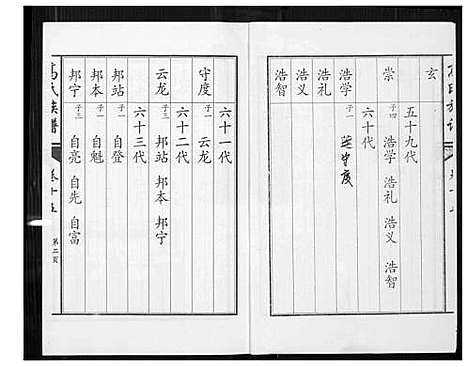 玄
五十九代
崇 子四 浩学 浩礼 浩义 浩智
六十代
浩学 子一 守度
浩礼
浩义
浩智
六十一代
守度 子一 云龙
六十二代
云龙 子三 邦站 邦本 邦宁
六十三代
邦站 子一 自登
邦本 子一 自魁
邦宁 子三 自亮 自先 自富
高氏族谱
卷十五
第二页